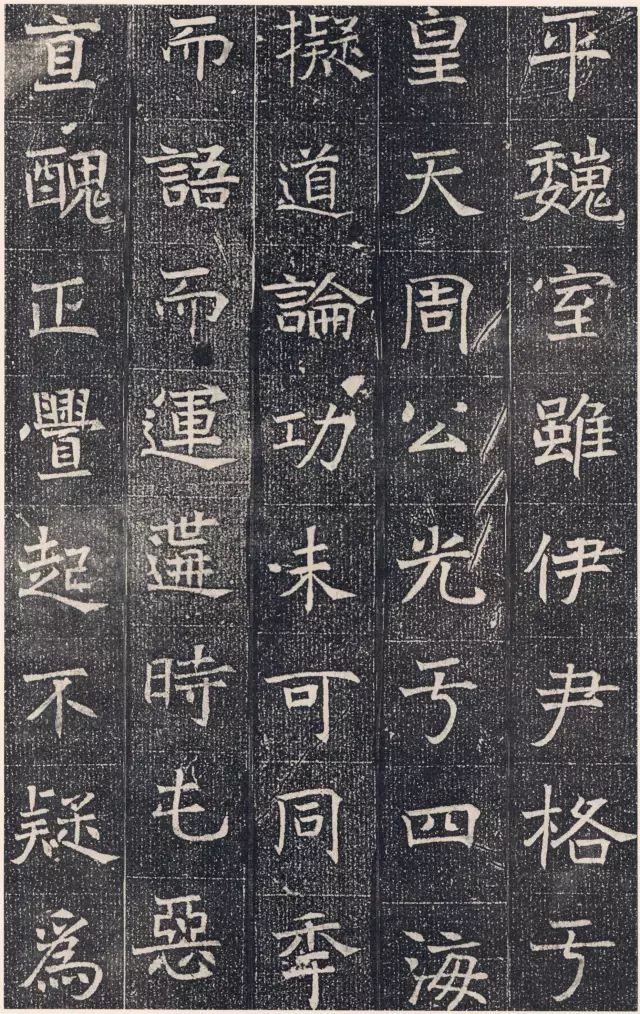 平魏室雖伊尹格亏
皇天周公光亏四海
擬道論功未可同秊
而語而運遘時屯惡
直醜正舋起不疑為